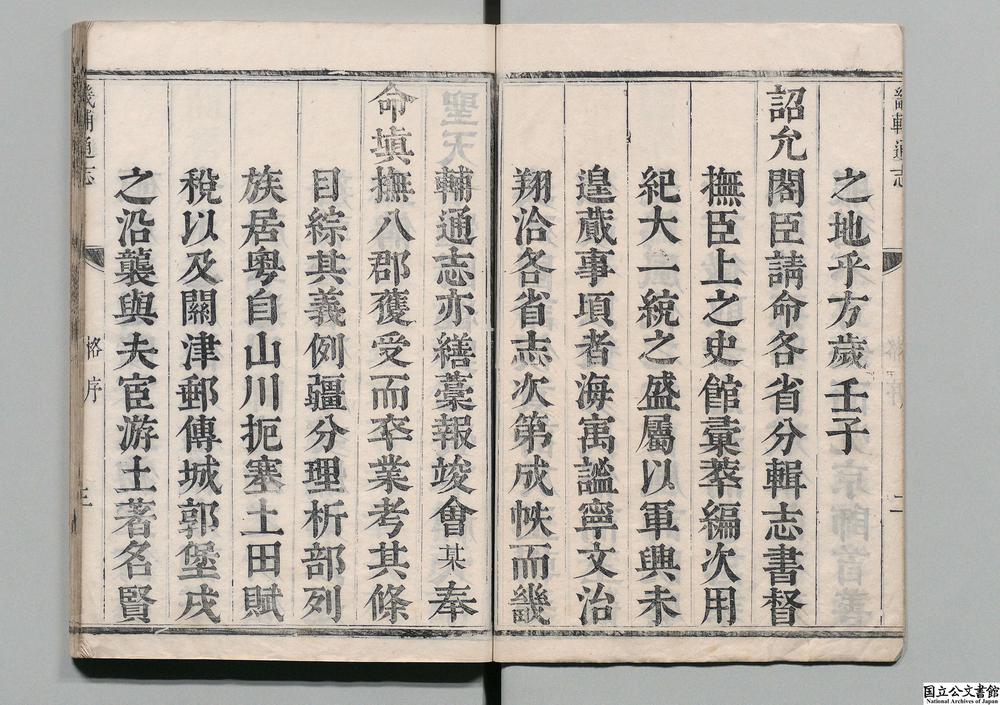 之地乎方歲壬子
詔允閣臣請命各省分輯志書督
撫臣上之史館彚萃編次用
紀大一統之盛屬以軍興未
遑蕆事頃者海寓謐寧文治
翔洽各省志次第成帙而畿
輔通志亦繕藁報竣會某奉
命塡撫八郡獲受而卒業考其條
目綜其義例疆分理析部列
族居粤自山川扼塞土田賦
稅以及關津郵傳城郭堡戍
之沿襲與夫宦游土著名賢
畿輔通志
格序
三
國立公文書館
National Archives of Japan